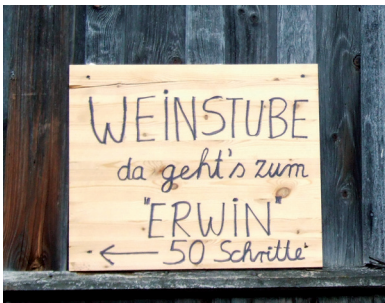 WEINSTUBE
da geht's zum
"ERWIN"
← 50 Schritte